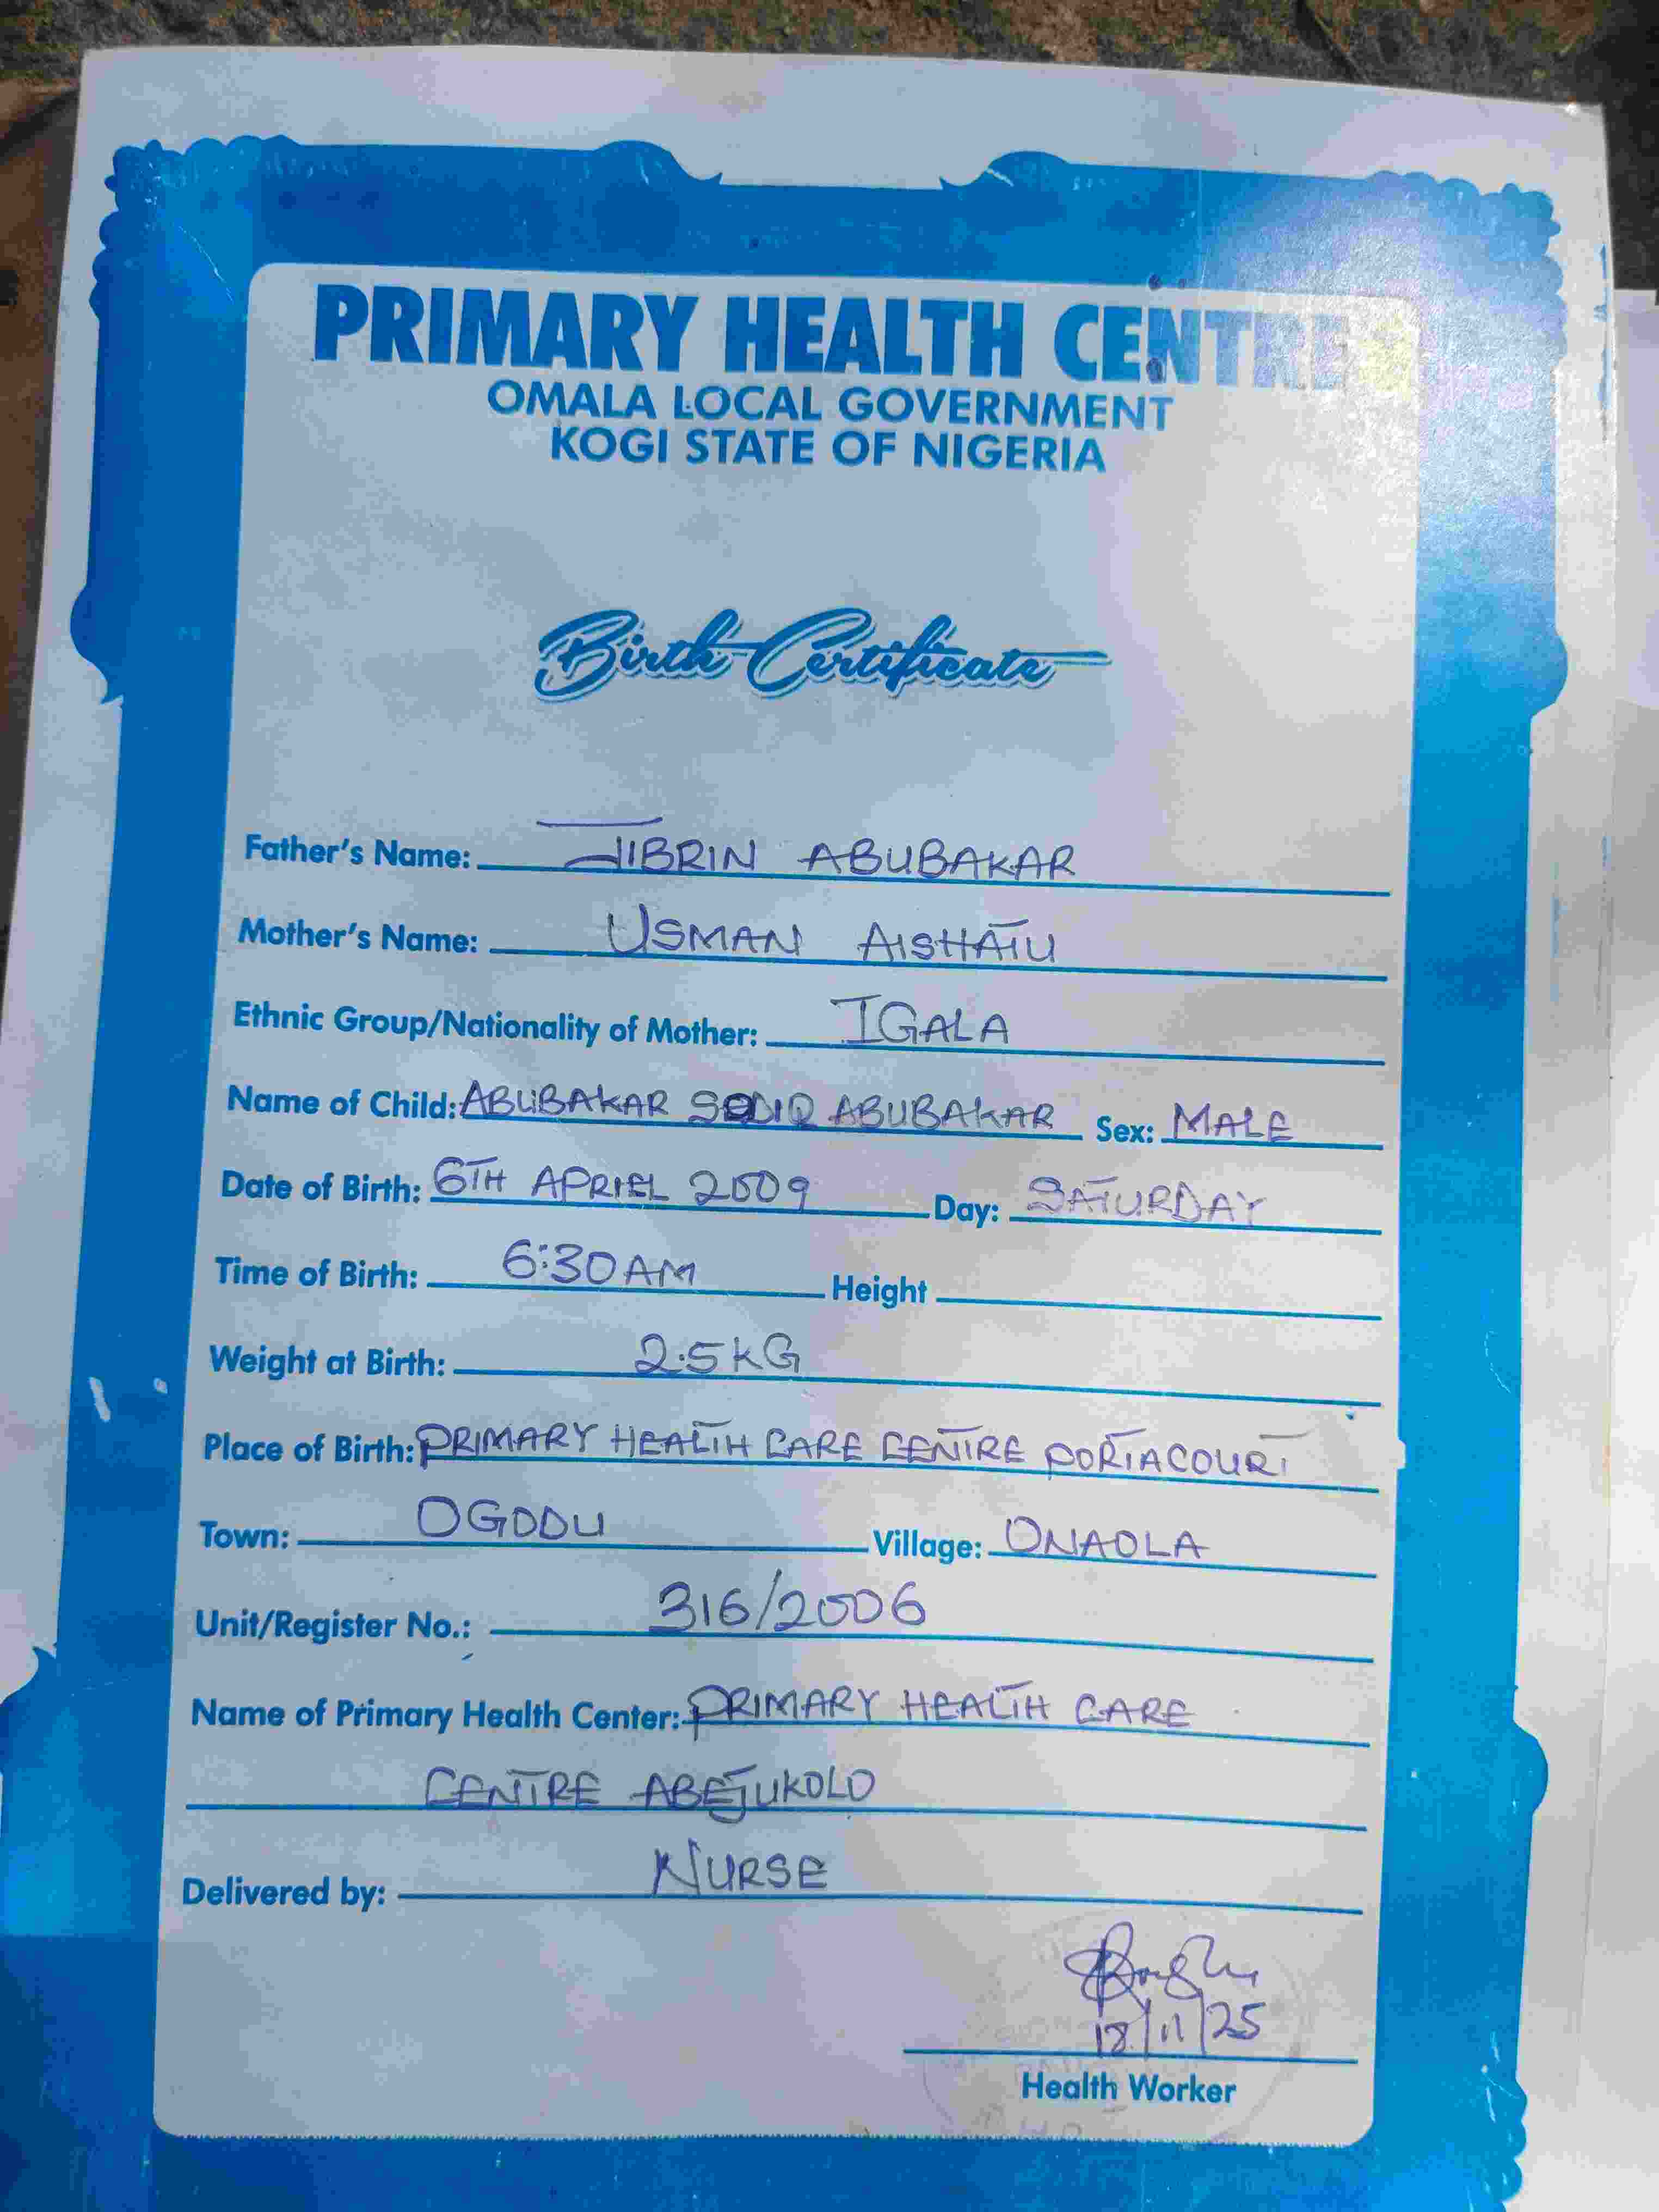 PRIMARY HEALTH CENTRE
OMALA LOCAL GOVERNMENT
KOGI STATE OF NIGERIA
Birth Certificate
Father's Name: JIBRIN ABUBAKAR
Mother's Name: USMAN AISHATU
Ethnic Group/Nationality of Mother: IGALA
Name of Child: ABUBAKAR SODIQ ABUBAKAR Sex: MALE
Date of Birth: 6TH APRIEL 2009 Day: SATURDAY
Time of Birth: 6:30AM Height
Weight at Birth: 2.5KG
Place of Birth: PRIMARY HEALTH CARE CENTRE PORTACOURT
Town: OGODU Village: ONAOLA
Unit/Register No.: 316/2006
Name of Primary Health Center: PRIMARY HEALTH CARE
CENTRE ABEJUKOLO
Delivered by: NURSE
18/11/25
Health Worker